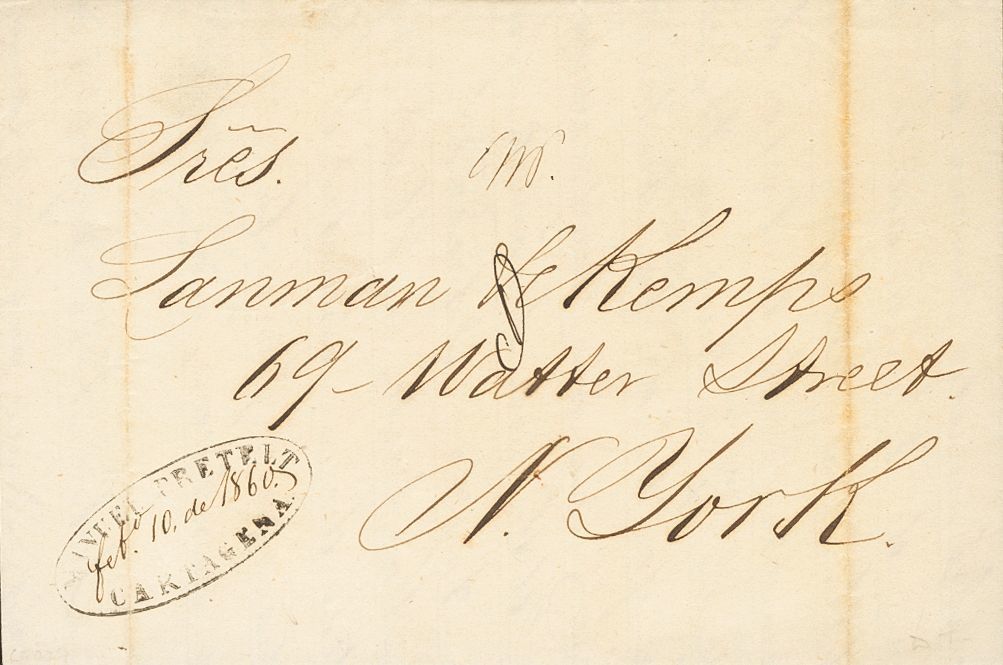 Srẽs.
Lanman & Kemps
69- Watter Street.
N. York.
MANUEL PRETELT
feb.º 10. de 1860.
CARTAGENA.